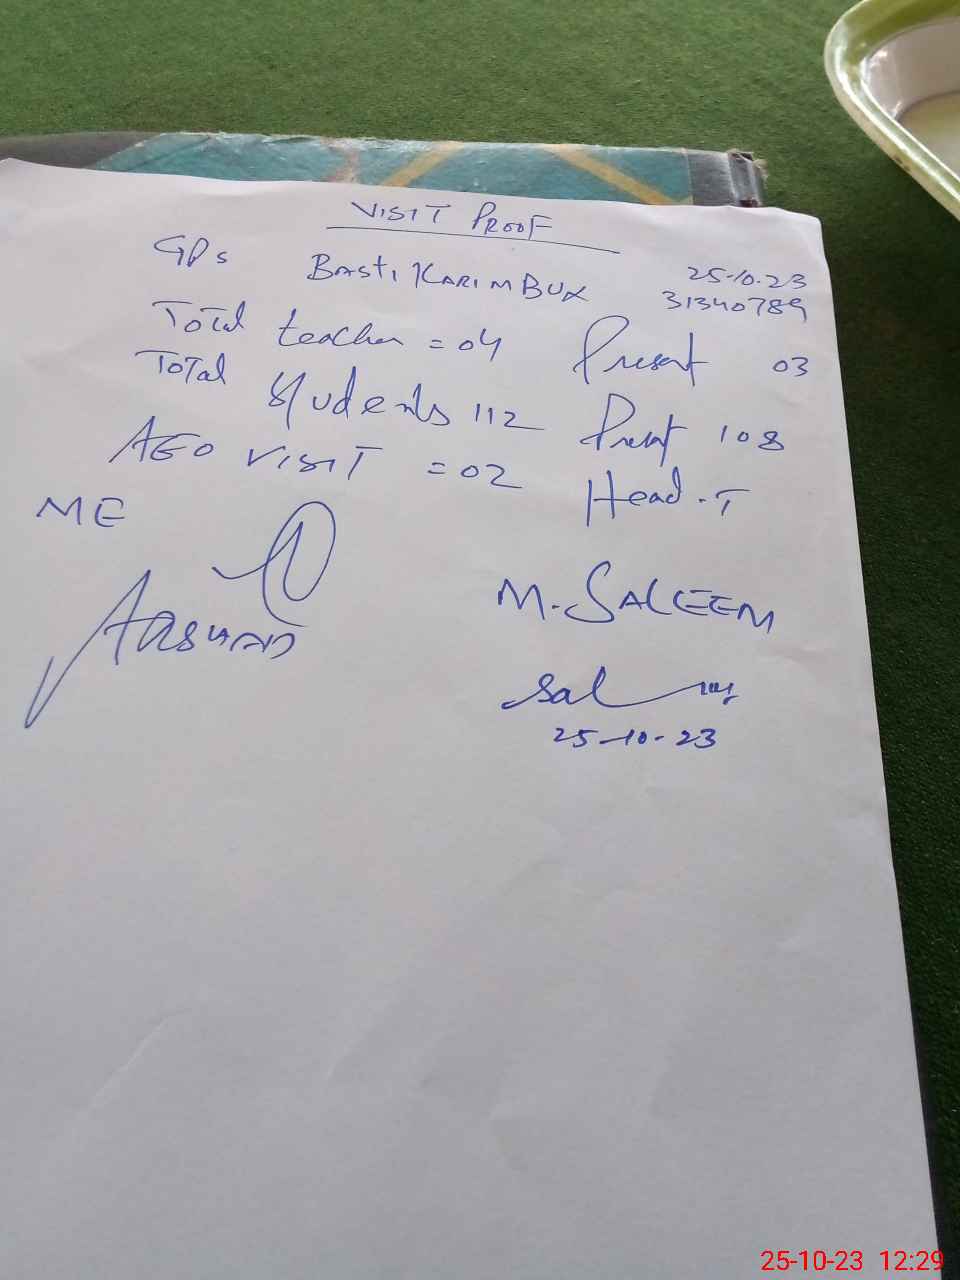 VISIT PROOF
GPs BASTI KARIM BUX 25-10-23
31340789
Total teacher = 04 Present 03
Total students 112 Present 108
AEO VISIT = 02 Head.T
ME
ARSHAD M. SALEEM
25-10-23
25-10-23 12:29